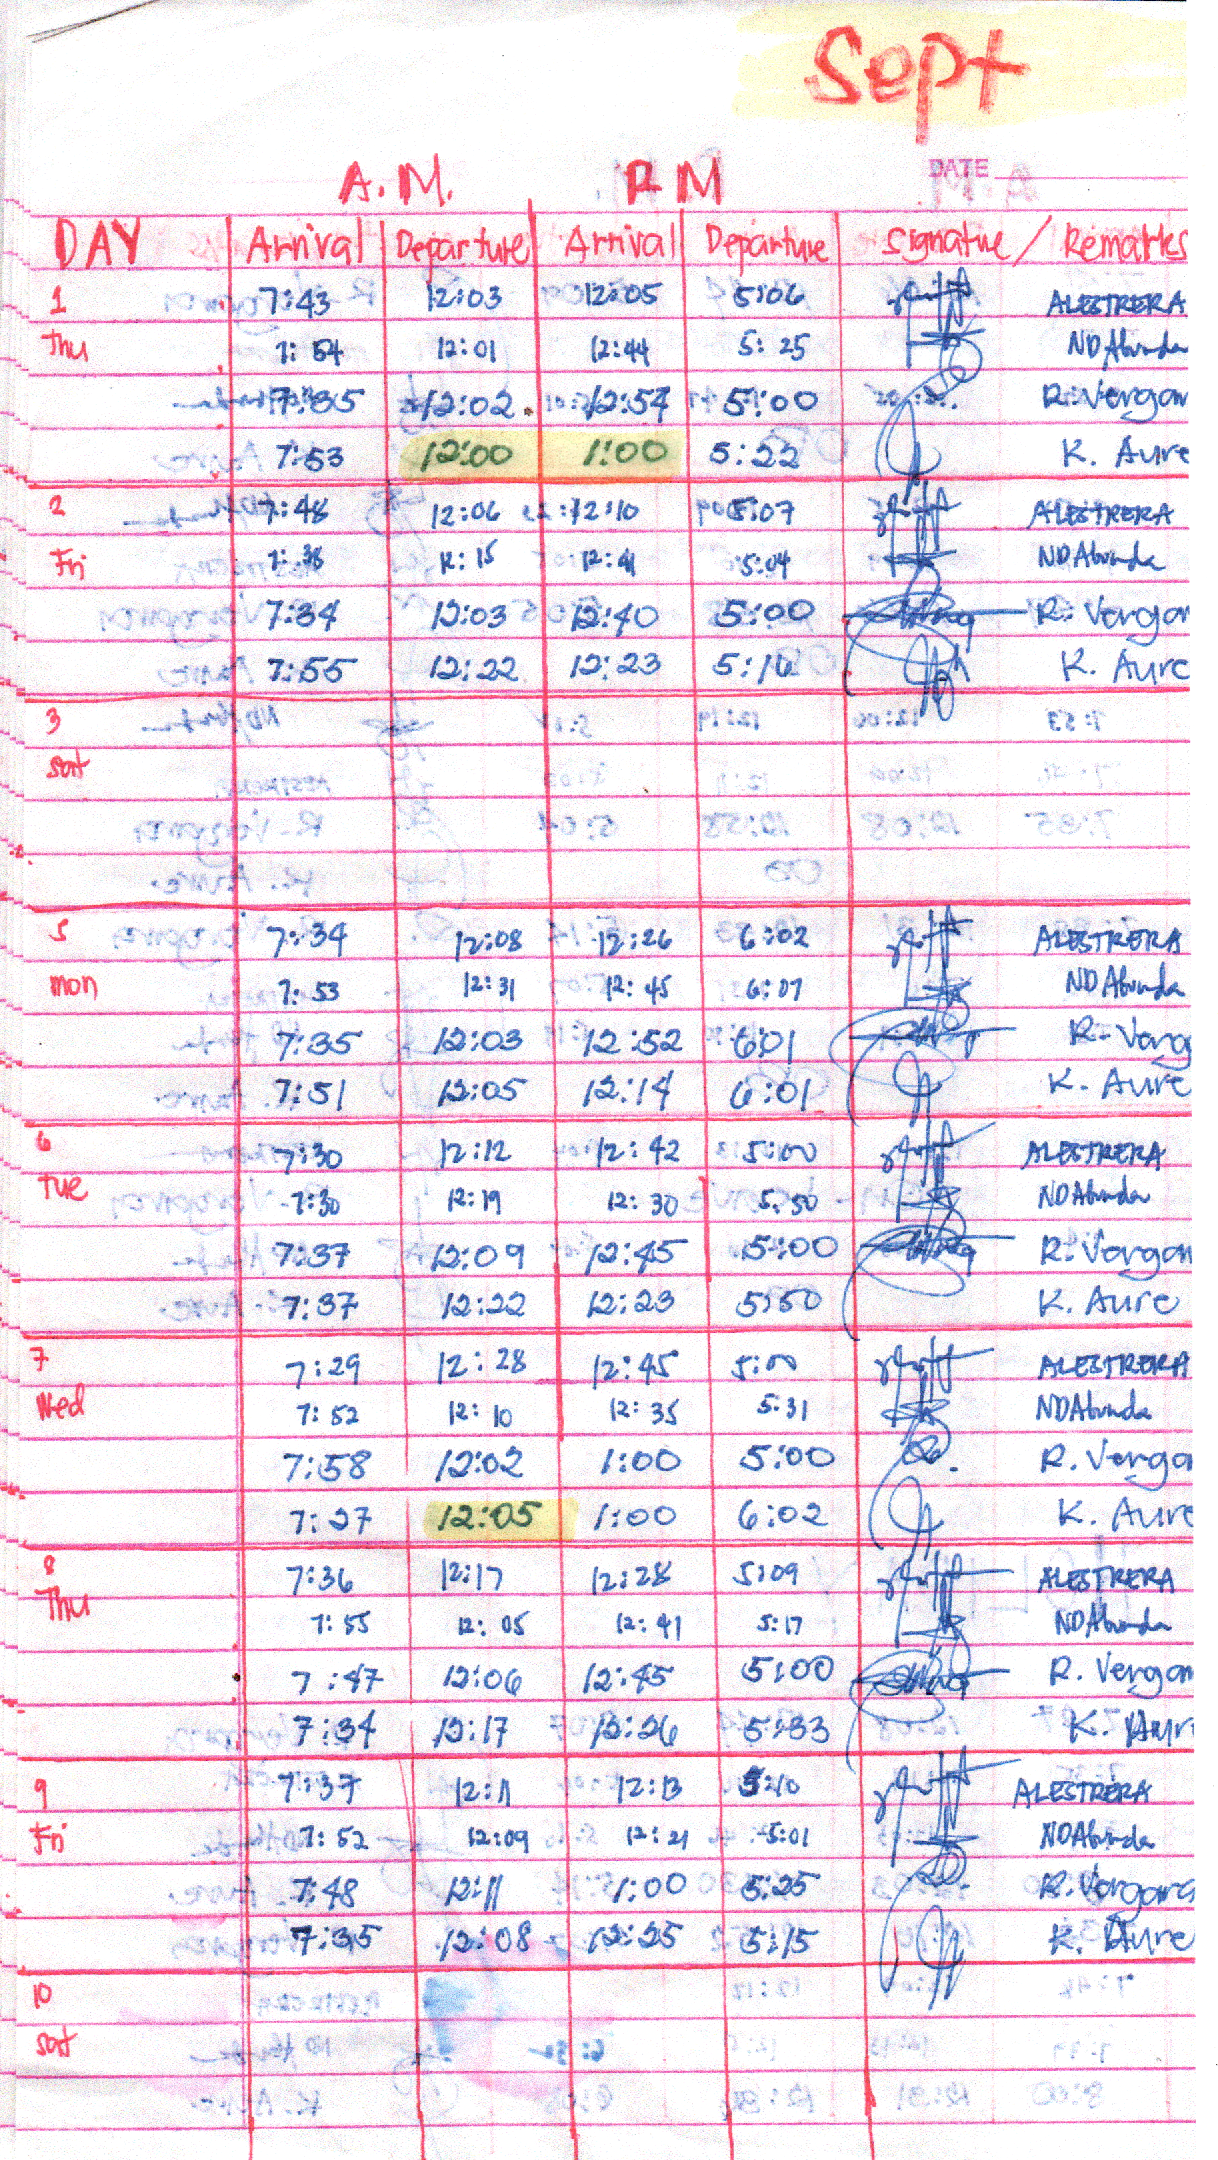 Sept
A.M. P.M
DATE
DAY Arrival Departure Arrival Departure Signature / Remarks
1 7:43 12:03 12:05 5:06 ALESTRERA
Thu 7:54 12:01 12:44 5:25 ND Abunda
7:35 12:02 12:54 5:00 R. Vergar
7:53 12:00 1:00 5:22 K. Aure
2 7:48 12:06 12:10 5:07 ALESTRERA
Fri 7:38 12:15 12:41 5:04 ND Abunda
7:34 12:03 12:40 5:00 R. Vergar
7:55 12:22 12:23 5:16 K. Aure
3
sat
5 7:34 12:08 12:26 6:02 ALESTRERA
mon 7:53 12:31 12:45 6:07 ND Abunda
7:35 12:03 12:52 6:01 R. Verg
7:51 12:05 12:14 6:01 K. Aure
6 7:30 12:12 12:42 5:00 ALESTRERA
Tue 7:30 12:19 12:30 5:50 ND Abunda
7:37 12:09 12:45 5:00 R. Vergar
7:37 12:22 12:23 5:50 K. Aure
7 7:29 12:28 12:45 5:00 ALESTRERA
Wed 7:52 12:10 12:35 5:31 ND Abunda
7:58 12:02 1:00 5:00 R. Verga
7:27 12:05 1:00 6:02 K. Aure
8 7:36 12:17 12:28 5:09 ALESTRERA
Thu 7:55 12:05 12:41 5:17 ND Abunda
7:47 12:06 12:45 5:00 R. Vergar
7:34 12:17 12:26 5:33 K. Aur
9 7:37 12:11 12:13 5:10 ALESTRERA
Fri 7:52 12:09 12:21 5:01 ND Abunda
7:48 12:11 1:00 5:25 R. Vergara
7:35 12:08 12:25 5:15 K. Aure
10
sat